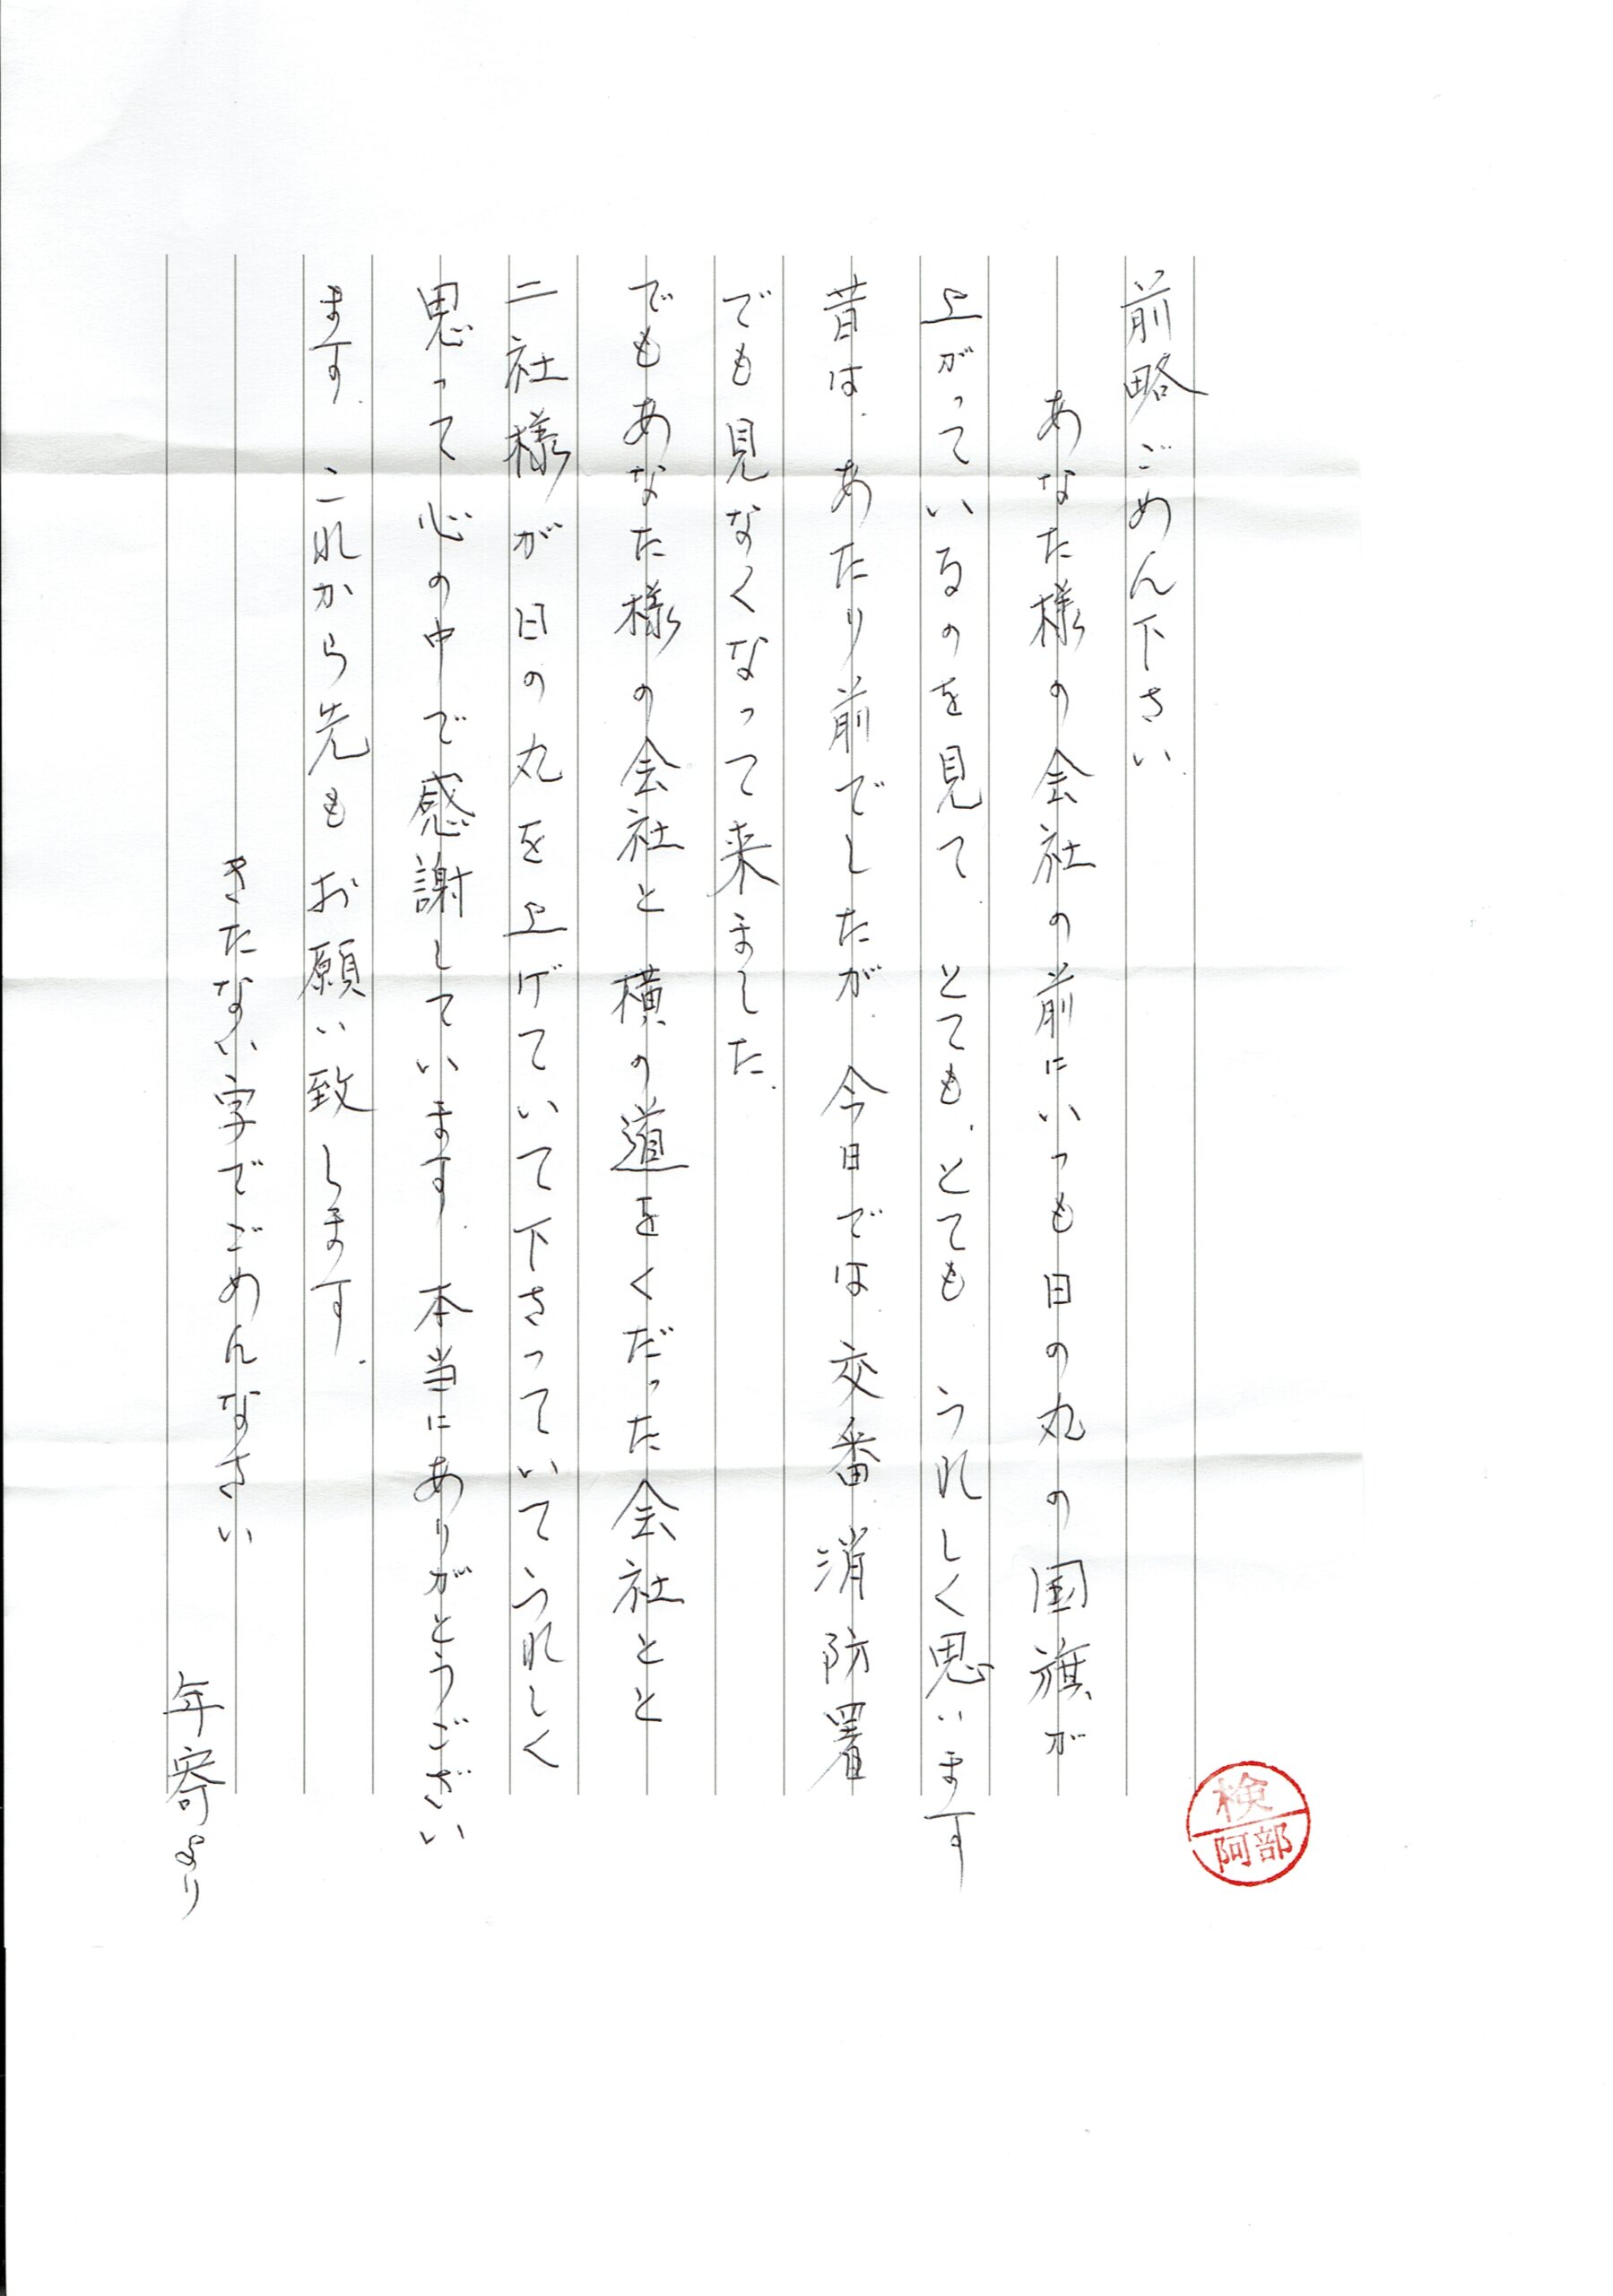 前略ごめん下さい.
あなた様の会社の前にいつも日の丸の国旗が
上がっているのを見て.とても.とても うれしく思います
昔は.あたり前でしたが.今日では.交番 消防署
でも見なくなって来ました.
でもあなた様の会社と横の道をくだった会社とと
二社様が日の丸を上げていて下さっていてうれしく
思って心の中で感謝しています.本当にありがとうござい
ます.これから先もお願い致します.
きたない字でごめんなさい
年寄より
検
阿部